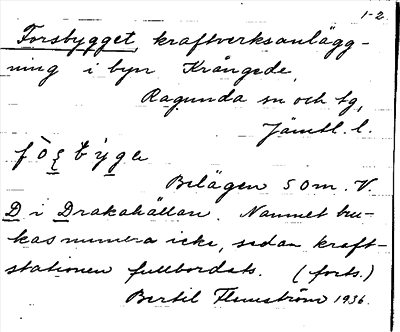 1-2.
Forsbygget, kraftverksanlägg-
ning i byn Krångede,
Ragunda sn och tg,
Jämtl. l.
Belägen 50 m. V.
D i Drakahällan. Namnet bru-
kas numera icke, sedan kraft-
stationen fullbordats. (forts.)
Bertil Flemström 1936.